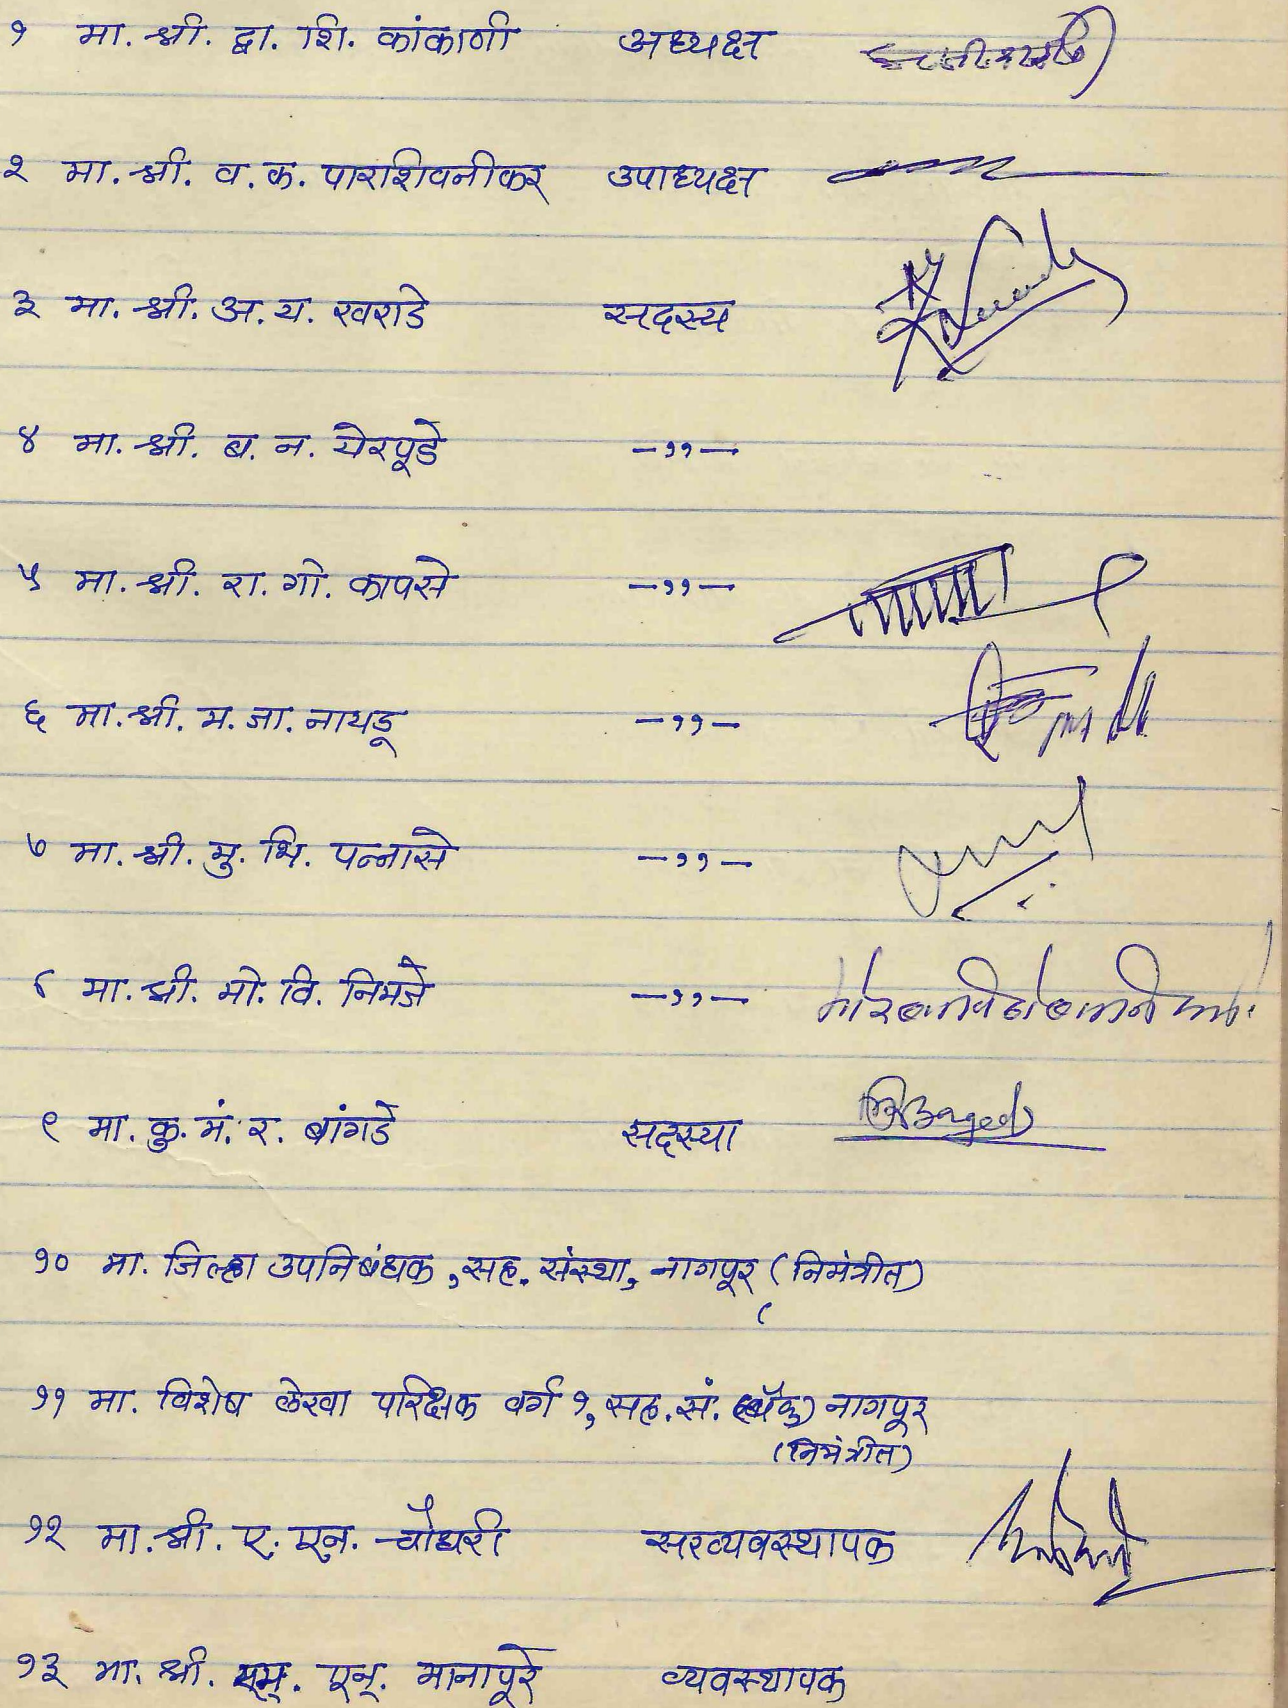 १ मा. श्री. द्वा. शि. कांकाणी अध्यक्ष
२ मा. श्री. व. क. पारशिवनीकर उपाध्यक्ष
३ मा. श्री. अ. य. खराडे सदस्य
४ मा. श्री. ब. न. येरपूडे —,,—
५ मा. श्री. रा. गो. कापसे —,,—
६ मा. श्री. म. जा. नायडू —,,—
७ मा. श्री. मु. भि. पन्नासे —,,—
८ मा. श्री. मो. वि. निमजे —,,—
९ मा. कु. मं. र. बांगडे सदस्या
१० मा. जिल्हा उपनिबंधक, सह. संस्था, नागपूर (निमंत्रीत)
११ मा. विशेष लेखा परिक्षक वर्ग १, सह. सं. नागपूर
(निमंत्रीत)
१२ मा. श्री. ए. एन. चौधरी सरव्यवस्थापक
१३ मा. श्री. एम्. एन्. मानापूरे व्यवस्थापक